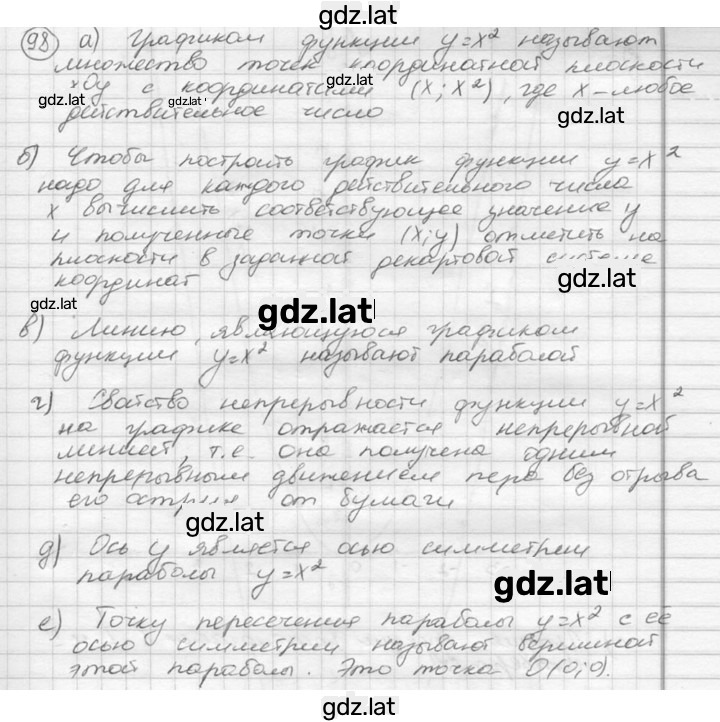 gdz.lat
98 а) Графиком функции y=x² называют
множество точек координатной плоскости
xOy с координатами (x; x²), где x – любое
gdz.lat gdz.lat gdz.lat
действительное число
б) Чтобы построить график функции y=x²
надо для каждого действительного числа
x вычислить соответствующее значение y
и полученные точки (x;y) отметить на
плоскости в заданной декартовой системе
gdz.lat
координат
gdz.lat
gdz.lat
в) Линию, являющуюся графиком
функции y=x² называют параболой
г) Свойство непрерывности функции y=x²
на графике отражается непрерывной
линией, т.е. она получена одним
непрерывным движением пера без отрыва
его острия от бумаги
gdz.lat
д) Ось y является осью симметрии
параболы y=x²
gdz.lat
е) Точку пересечения параболы y=x² с её
осью симметрии называют вершиной
этой параболы. Это точка O(0;0).
gdz.lat